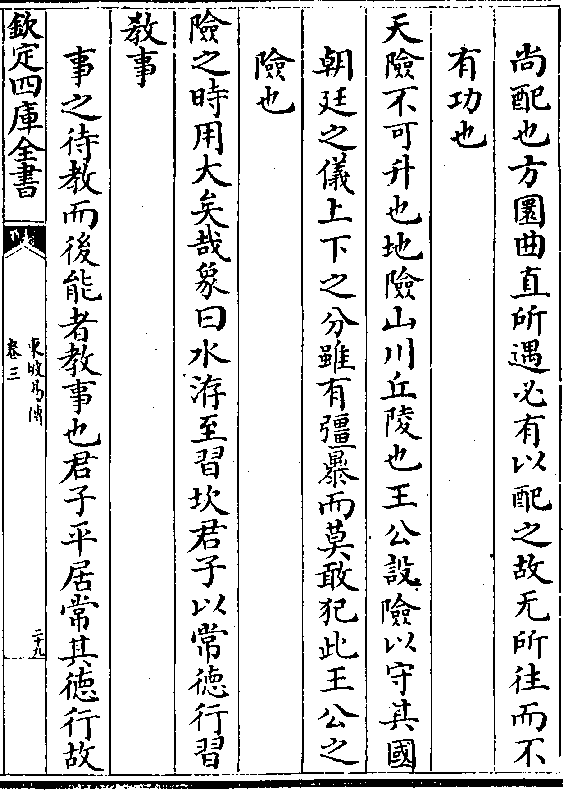 尚配也方圜曲直所遇必有以配之故无所往而不
有功也
天險不可升也地險山川丘陵也王公設險以守其國
朝廷之儀上下之分雖有彊暴而莫敢犯此王公之
險也
險之時用大矣哉象曰水洊至習坎君子以常徳行習
敎事
事之待教而後能者教事也君子平居常其徳行故
欽定四庫全書
東坡易傳
卷三
二十九